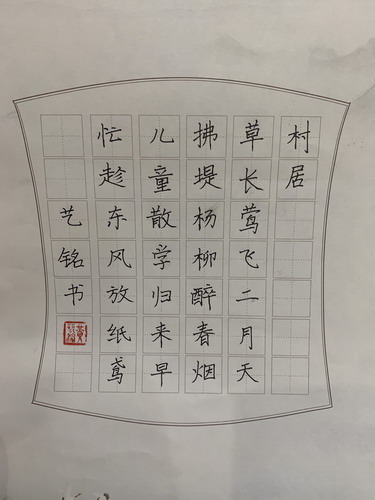 村居
草长莺飞二月天
拂堤杨柳醉春烟
儿童散学归来早
忙趁东风放纸鸢
艺铭书